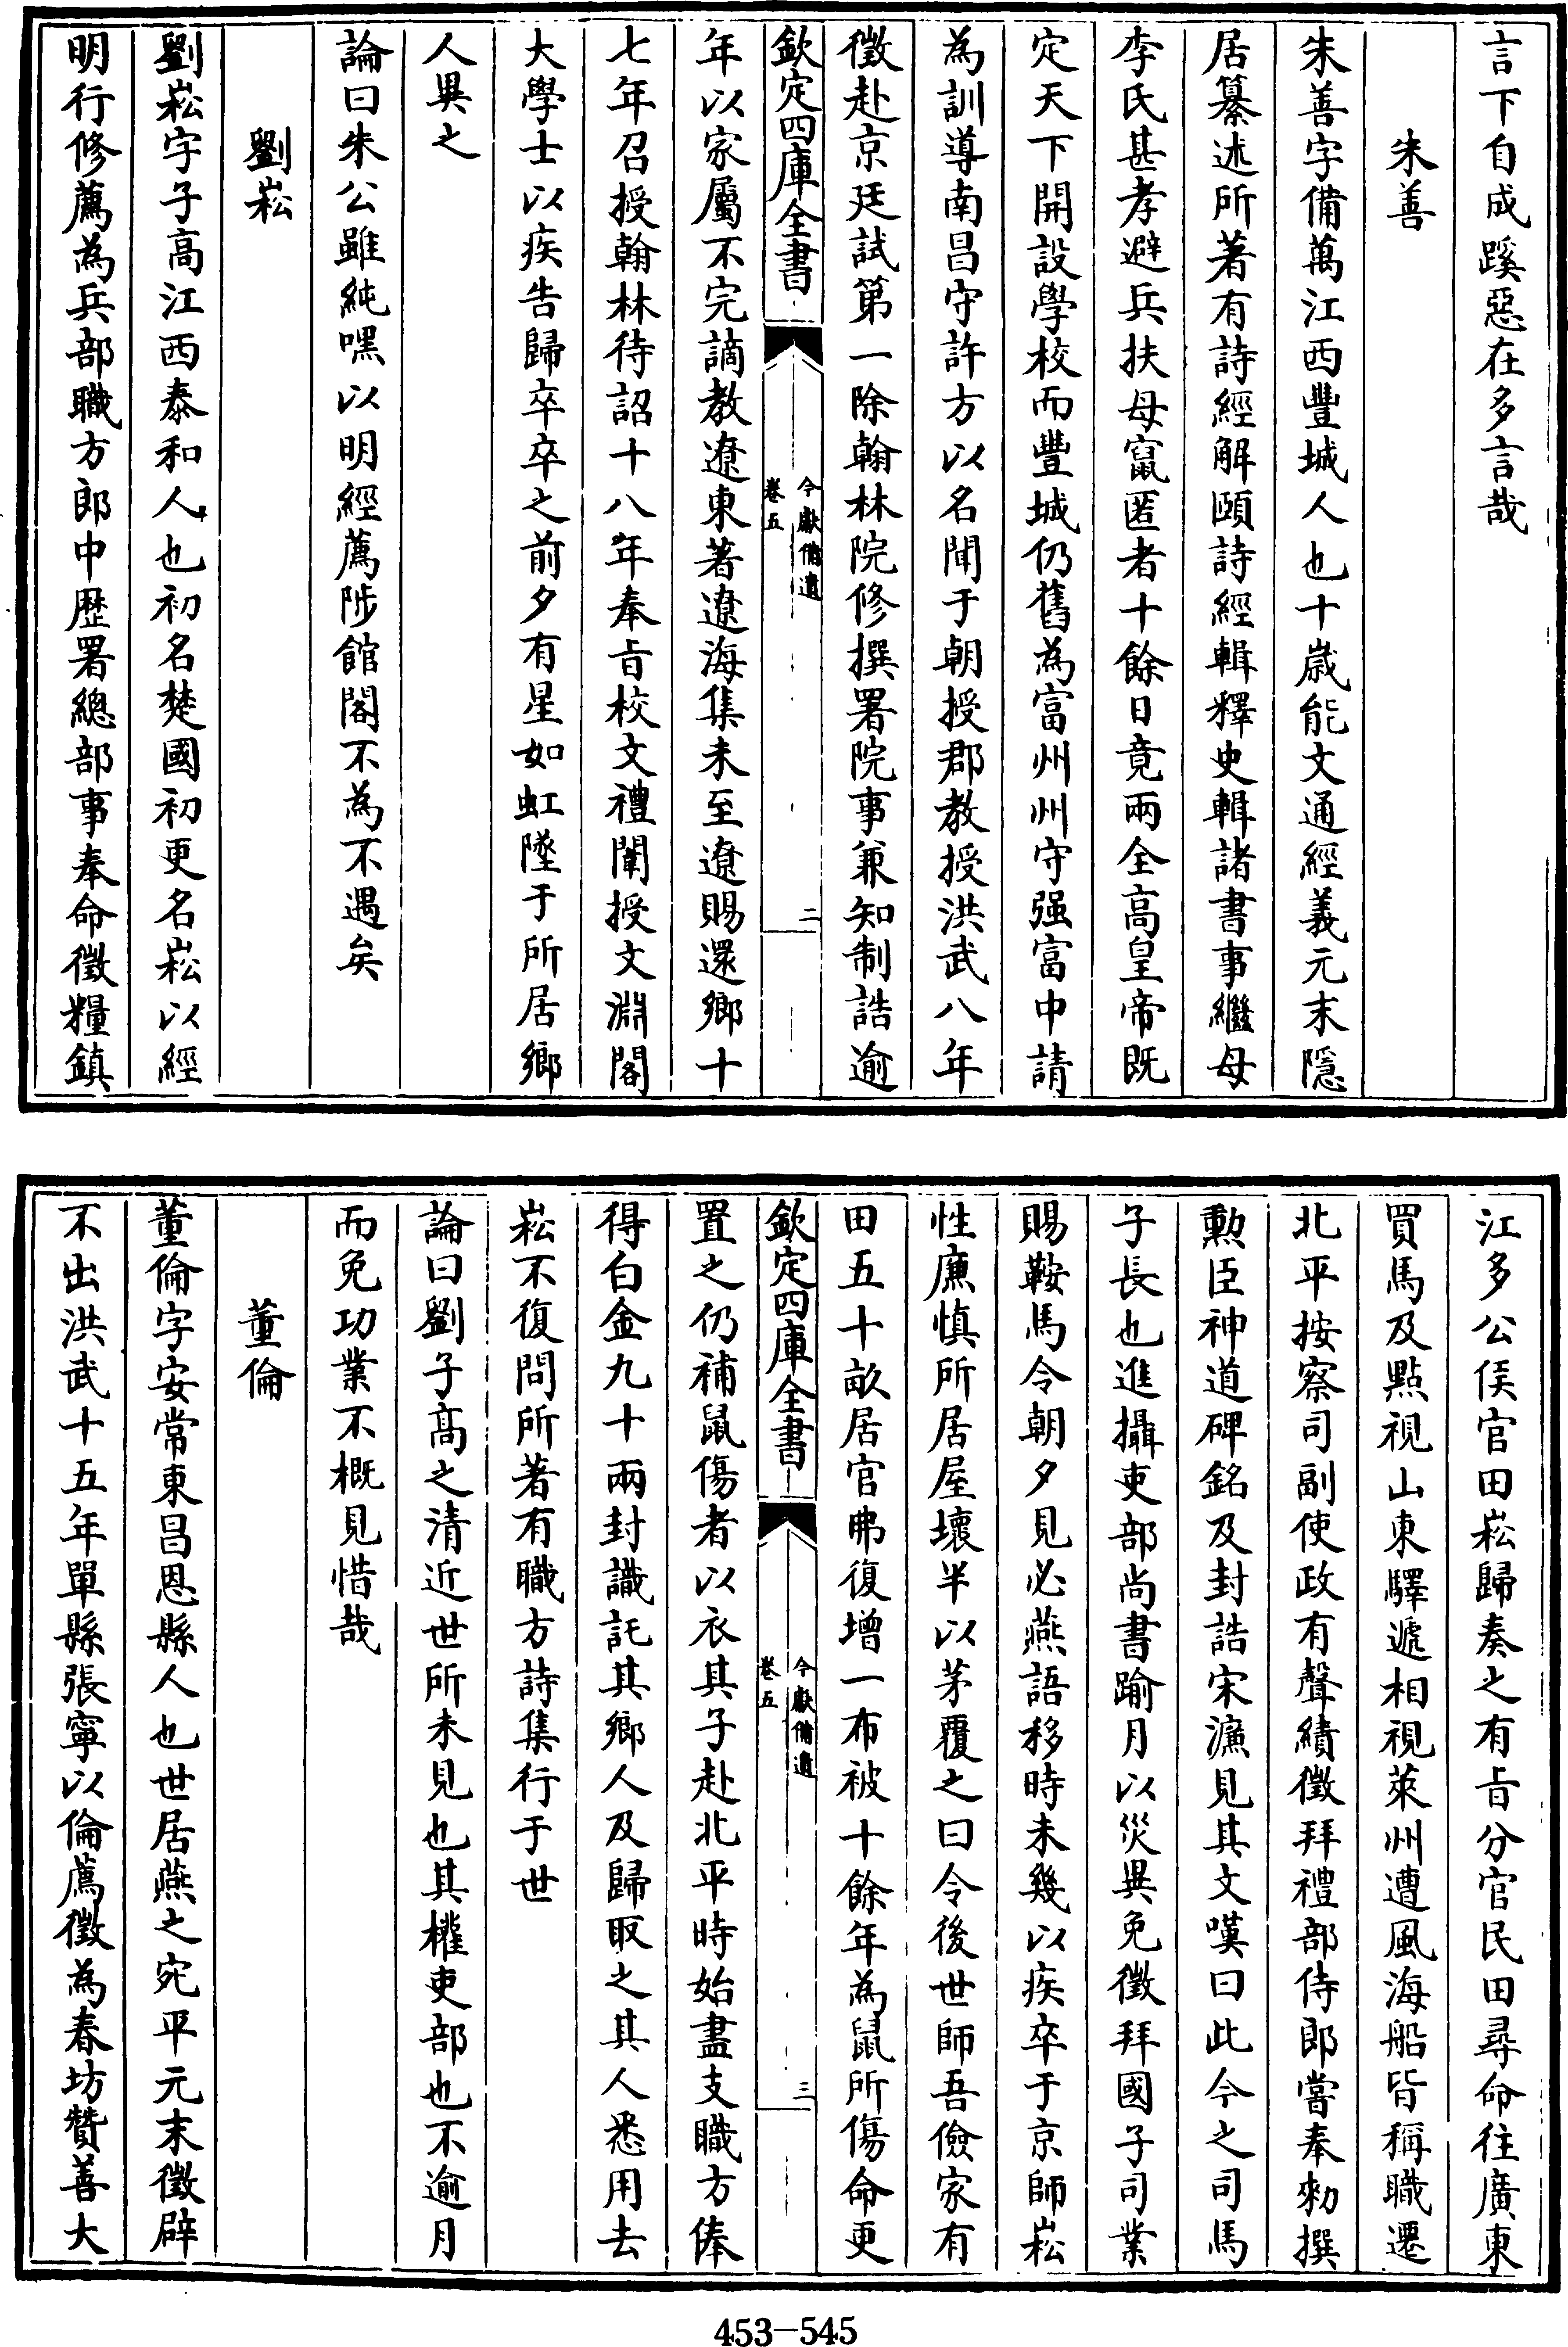 言下自成蹊惡在多言哉
朱善
朱善字備萬江西豐城人也十歲能文通經義元末隱
居纂述所著有詩經解頤詩經輯釋史輯諸書事繼母
李氏甚孝避兵扶母竄匿者十餘日竟兩全高皇帝既
定天下開設學校而豐城仍舊為富州州守强富中請
為訓導南昌守許方以名聞于朝授郡教授洪武八年
徵赴京廷試第一除翰林院修撰署院事兼知制誥逾
欽定四庫全書
今獻備遺
卷五
二
年以家屬不完謫教遼東著遼海集未至遼賜還鄉十
七年召授翰林待詔十八年奉旨校文禮闈授文淵閣
大學士以疾告歸卒卒之前夕有星如虹墜于所居鄉
人異之
論曰朱公雖純嘿以明經薦陟館閣不為不遇矣
劉崧
劉崧字子高江西泰和人也初名楚國初更名崧以經
明行修薦為兵部職方郎中歷署總部事奉命徵糧鎮
江多公侯官田崧歸奏之有旨分官民田尋命往廣東
買馬及點視山東驛遞相視萊州遭風海船皆稱職遷
北平按察司副使政有聲績徵拜禮部侍郎嘗奉勑撰
勲臣神道碑銘及封誥宋濂見其文嘆曰此今之司馬
子長也進攝吏部尚書踰月以災異免徵拜國子司業
賜鞍馬令朝夕見必燕語移時未幾以疾卒于京師崧
性廉慎所居屋壞半以茅覆之曰令後世師吾儉家有
田五十畝居官弗復增一布被十餘年為鼠所傷命更
欽定四庫全書
今獻備遺
卷五
三
置之仍補鼠傷者以衣其子赴北平時始盡支職方俸
得白金九十兩封識託其鄉人及歸取之其人悉用去
崧不復問所著有職方詩集行于世
論曰劉子高之清近世所未見也其權吏部也不逾月
而免功業不概見惜哉
董倫
董倫字安常東昌恩縣人也世居燕之宛平元末徵辟
不出洪武十五年單縣張寧以倫薦徵為春坊贊善大
453—545